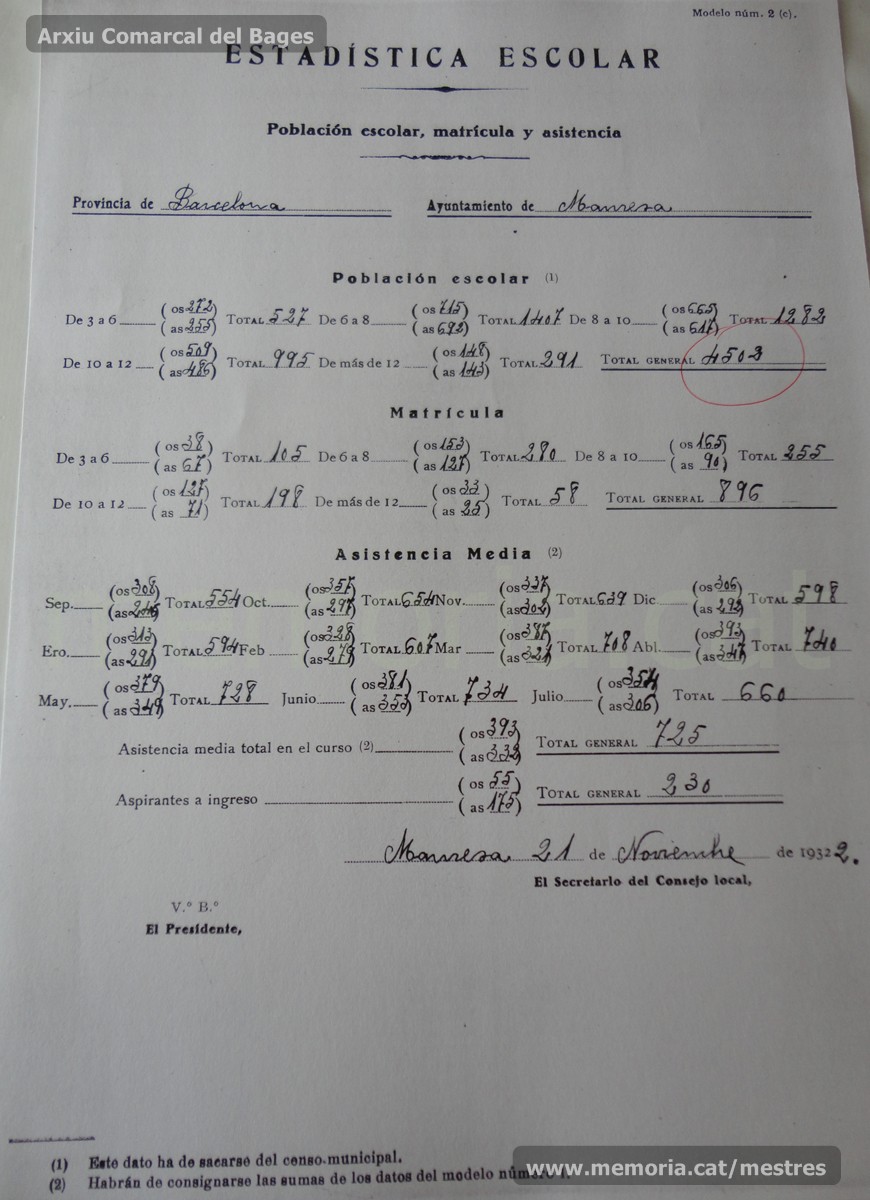 Arxiu Comarcal del Bages
Modelo núm. 2 (c).
ESTADÍSTICA ESCOLAR
Población escolar, matrícula y asistencia
Provincia de Barcelona Ayuntamiento de Manresa
Población escolar (1)
De 3 a 6 (os 272) (as 255) TOTAL 527 De 6 a 8 (os 715) (as 692) TOTAL 1407 De 8 a 10 (os 665) (as 617) TOTAL 1282
De 10 a 12 (os 509) (as 486) TOTAL 995 De más de 12 (os 148) (as 143) TOTAL 291 TOTAL GENERAL 4502
Matrícula
De 3 a 6 (os 38) (as 67) TOTAL 105 De 6 a 8 (os 153) (as 127) TOTAL 280 De 8 a 10 (os 165) (as 90) TOTAL 255
De 10 a 12 (os 127) (as 71) TOTAL 198 De más de 12 (os 33) (as 25) TOTAL 58 TOTAL GENERAL 896
Asistencia Media (2)
Sep. (os 308) (as 246) TOTAL 554 Oct. (os 357) (as 297) TOTAL 654 Nov. (os 337) (as 302) TOTAL 639 Dic (os 306) (as 292) TOTAL 598
Ero. (os 313) (as 281) TOTAL 594 Feb (os 328) (as 279) TOTAL 607 Mar (os 387) (as 321) TOTAL 708 Abl. (os 393) (as 347) TOTAL 740
May. (os 379) (as 349) TOTAL 728 Junio (os 381) (as 353) TOTAL 734 Julio (os 354) (as 306) TOTAL 660
Asistencia media total en el curso (2) (os 393) (as 332) TOTAL GENERAL 725
Aspirantes a ingreso (os 55) (as 175) TOTAL GENERAL 230
Manresa 21 de Noviembre de 1932 2.
El Secretario del Consejo local,
V.º B.º
El Presidente,
(1) Este dato ha de sacarse del censo municipal.
(2) Habrán de consignarse las sumas de los datos del modelo número 1.
www.memoria.cat/mestres